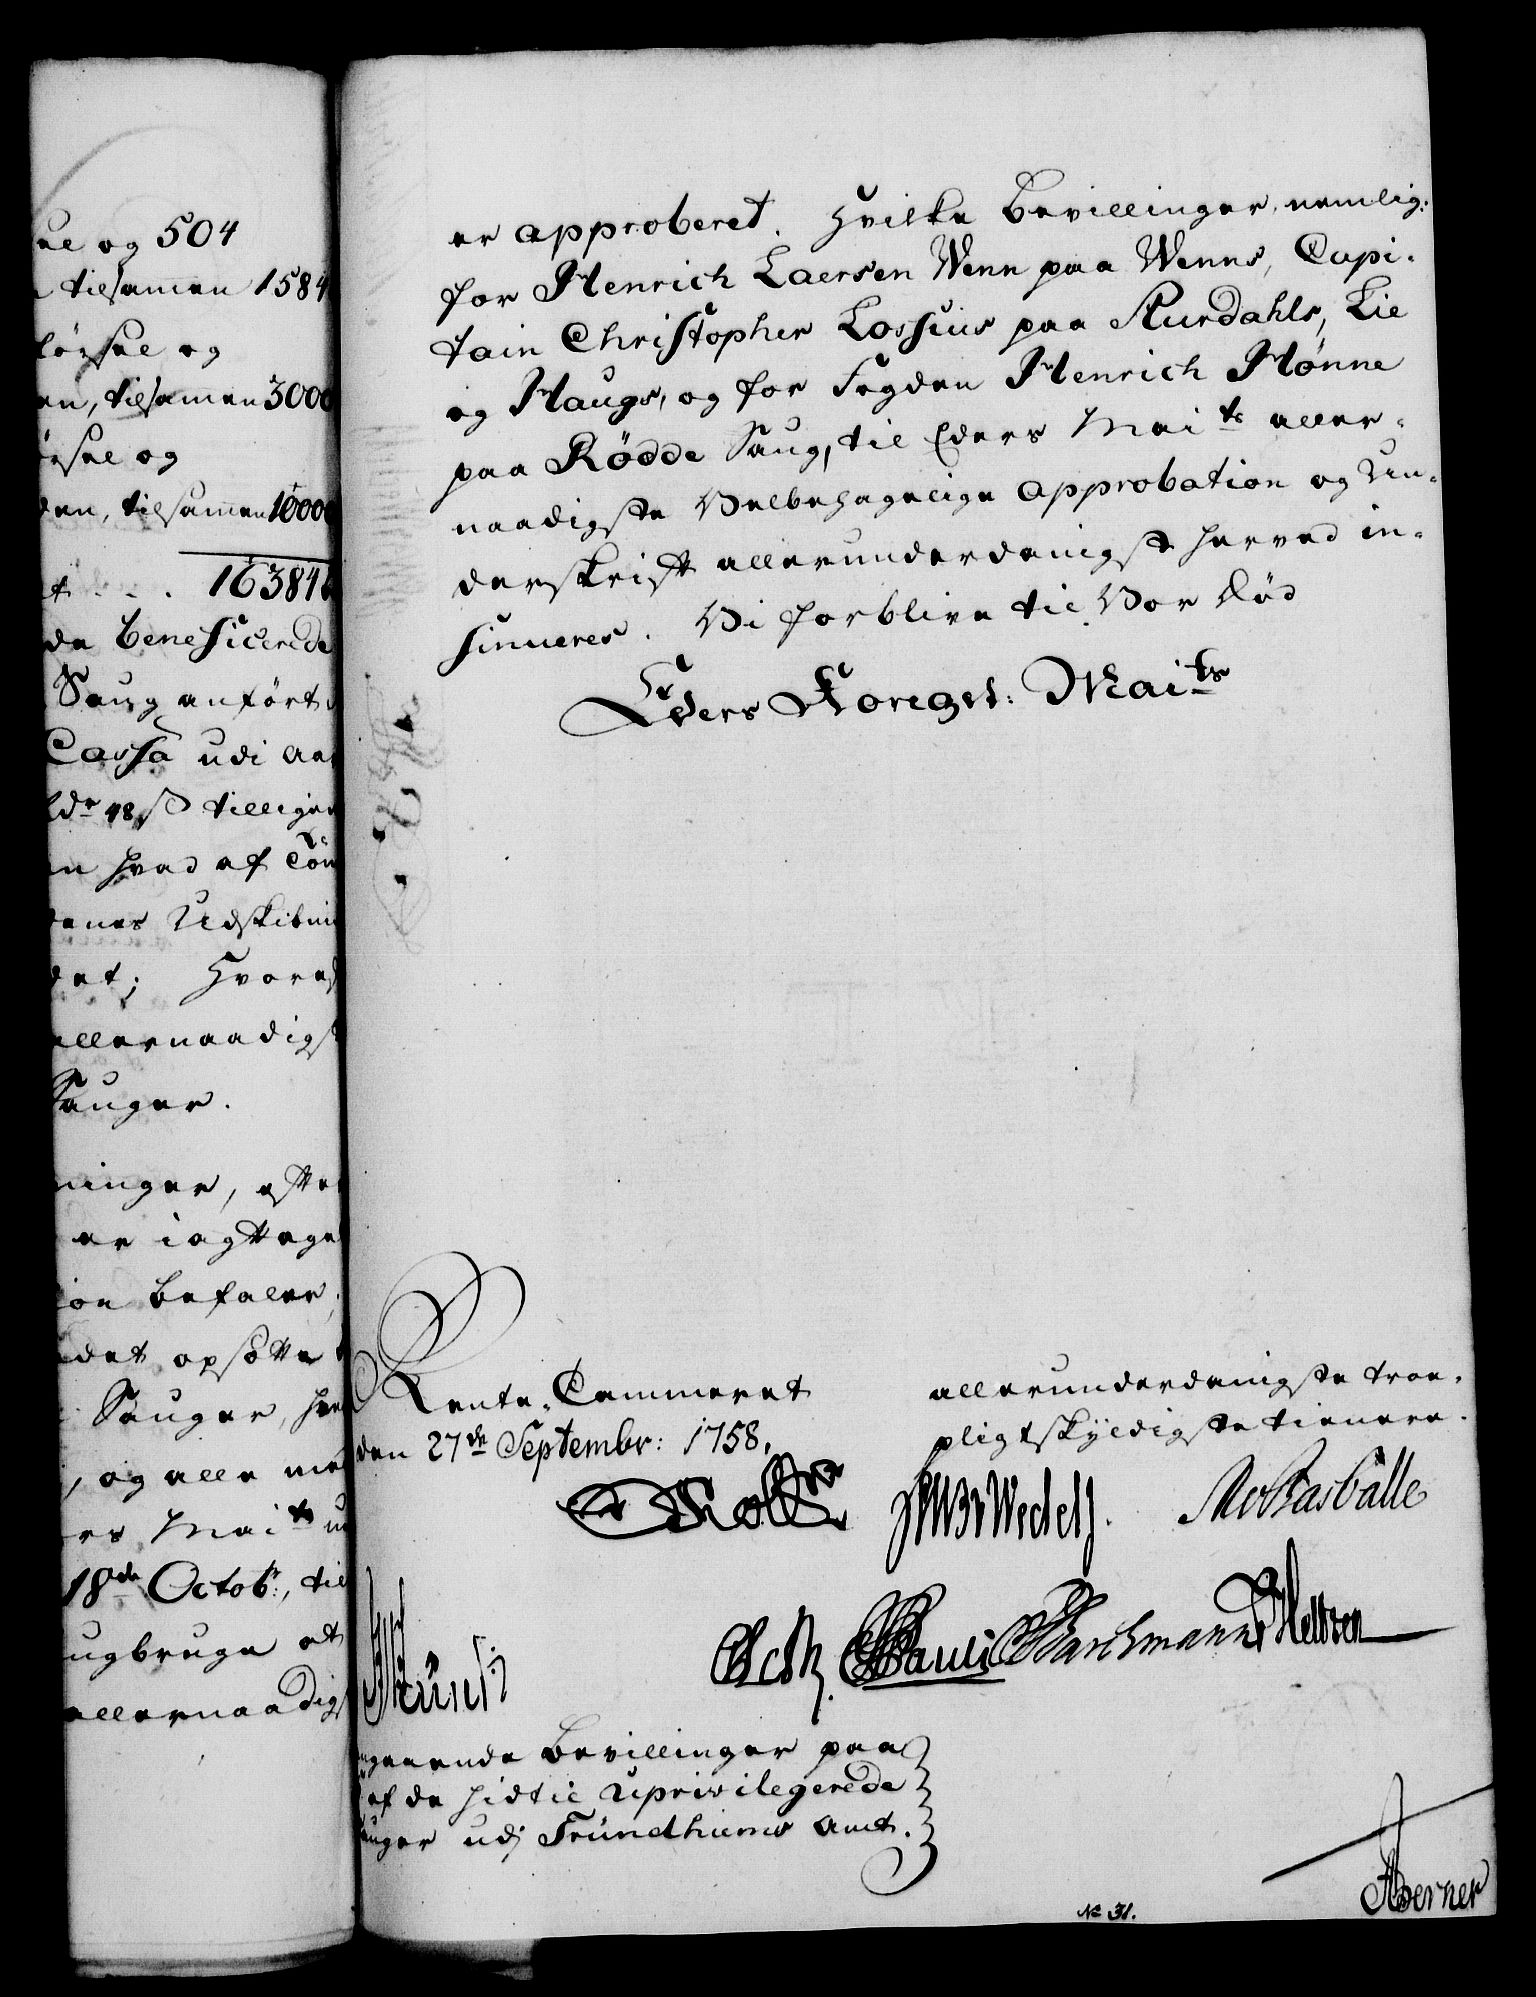 el og 504
tilsamen 1584
førsel og
en, tilsamen 3000
ørsel og
den, tilsamen 10000
t . . . 163846
de beneficerede
Saug anført
Cassa udi
ldr 48 ß tillige
en hvad af Tøn
denes Udskibni
det; Hvored
allernaadigst
Sauger.
ninger, efter
er iagttaget
ion befaler,
det opsötte
Sauger, her
, og alle med
rs Maits
18de Octobr:, til
ugbruge at
allernaadigst
er approberet. Hvilke Bevillinger, nemlig:
for Henrich Laersen Wenn paa Wenns, Capi-
tain Christopher Lossius paa Kurdahls, Lie
og Haugs, og for Fogden Henrich Hønne
paa Rödde Saug, til Eders Maits aller-
naadigste Velbehagelige Approbation og Un-
derskrift allerunderdanigst herved in-
sinueres. Vi forblive til Vor Död
Eders Kongel: Maits
Rente-Cammeret
den 27de Septembr: 1758.
allerunderdanigste troe-
pligtskyldigste tienere.
Wedell.
Pauli Barchmann Heltzen
gaaende Bevillinger paa
af de hidtil upriviligerede
auger udj Trundhiems Amt.
No 31.